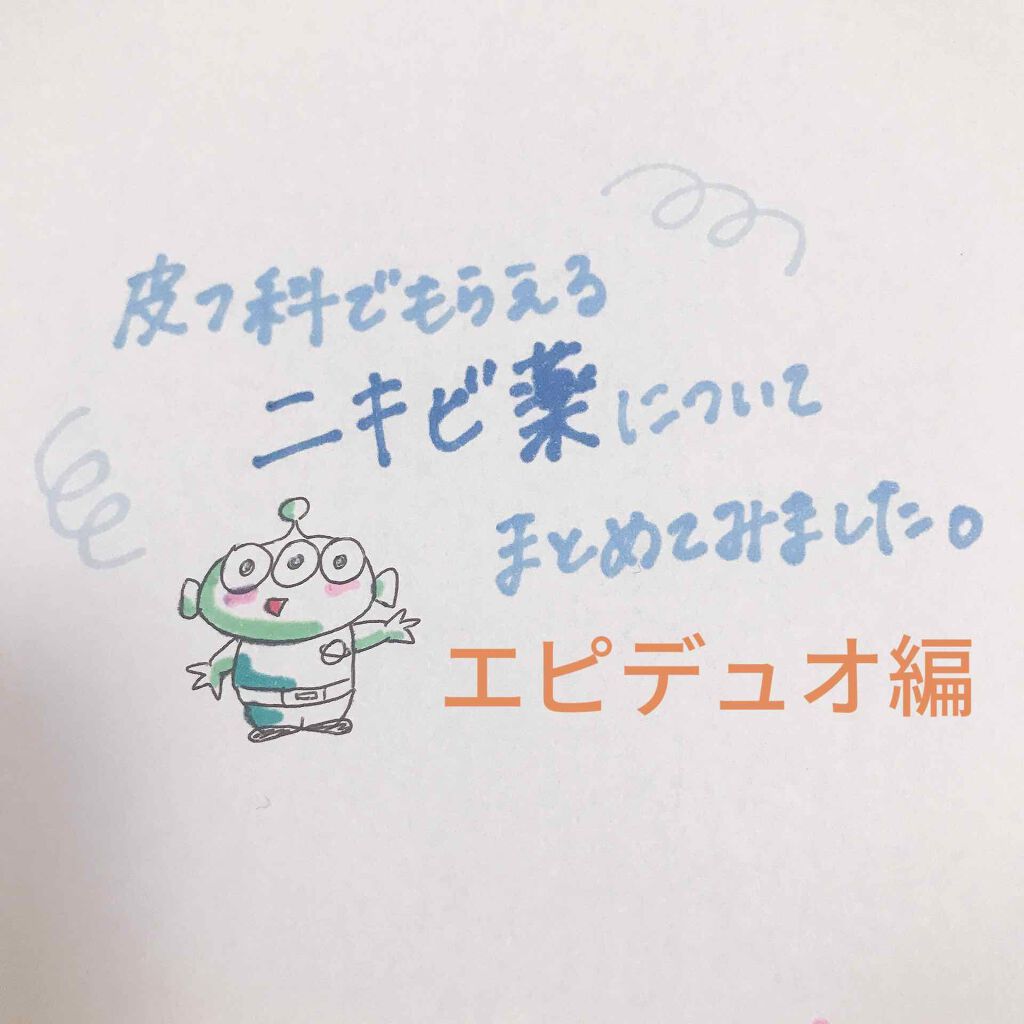 皮フ科でもらえる
ニキビ薬について
まとめてみました。
エピデュオ編